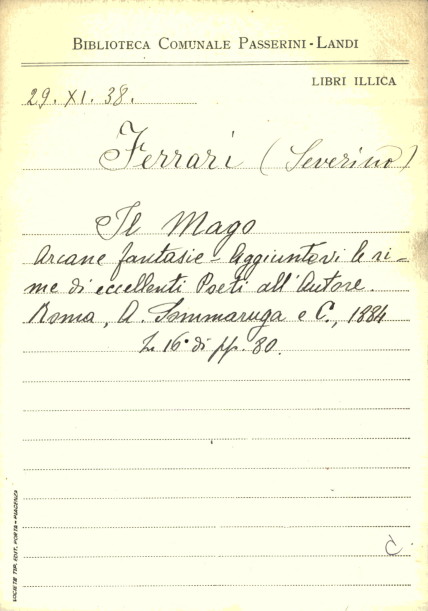 BIBLIOTECA COMUNALE PASSERINI-LANDI
LIBRI ILLICA
29. XI. 38.
Ferrari (Severino)
Il Mago
Arcane fantasie - Aggiuntovi le ri-
me di eccellenti Poeti all'Autore.
Roma, A. Sommaruga e C., 1884
In 16° di pp. 80.
C
SOCIETÀ TIP. EDIT. PORTA - PIACENZA